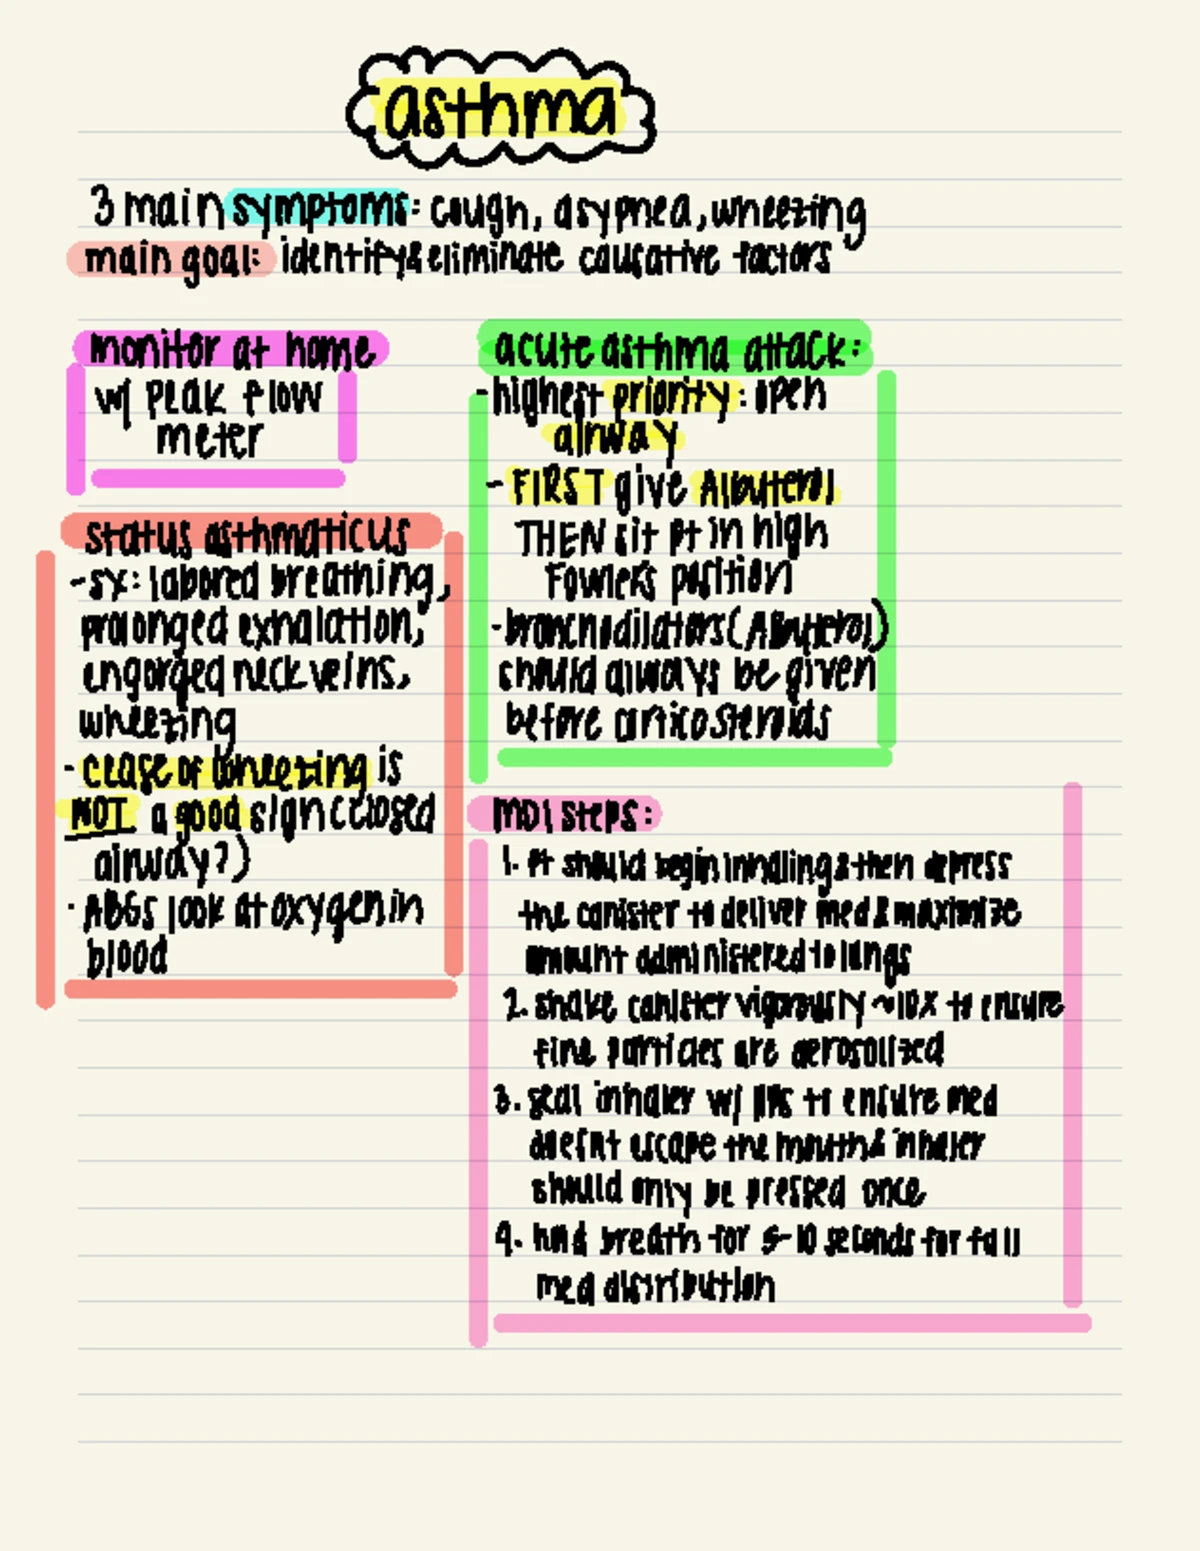 asthma
3 main symptoms: cough, dsypnea, wheezing
main goal: identify & eliminate causative factors
monitor at home
w/ peak flow
meter
status asthmaticus
- sx: labored breathing,
prolonged exhalation,
engorged neck veins,
wheezing
- cease of wheezing is
NOT a good sign (closed
airway?)
- ABGs look at oxygen in
blood
acute asthma attack:
- highest priority: open
airway
- FIRST give Albuterol
THEN sit pt in high
Fowler's position
- bronchodilators (Albuterol)
should always be given
before corticosteroids
MDI steps:
1. pt should begin inhaling & then depress
the canister to deliver med & maximize
amount administered to lungs
2. shake canister vigorously ~10x to ensure
fine particles are aerosolized
3. seal inhaler w/ lips to ensure med
doesn't escape the mouth & inhaler
should only be pressed once
4. hold breath for 5-10 seconds for full
med distribution